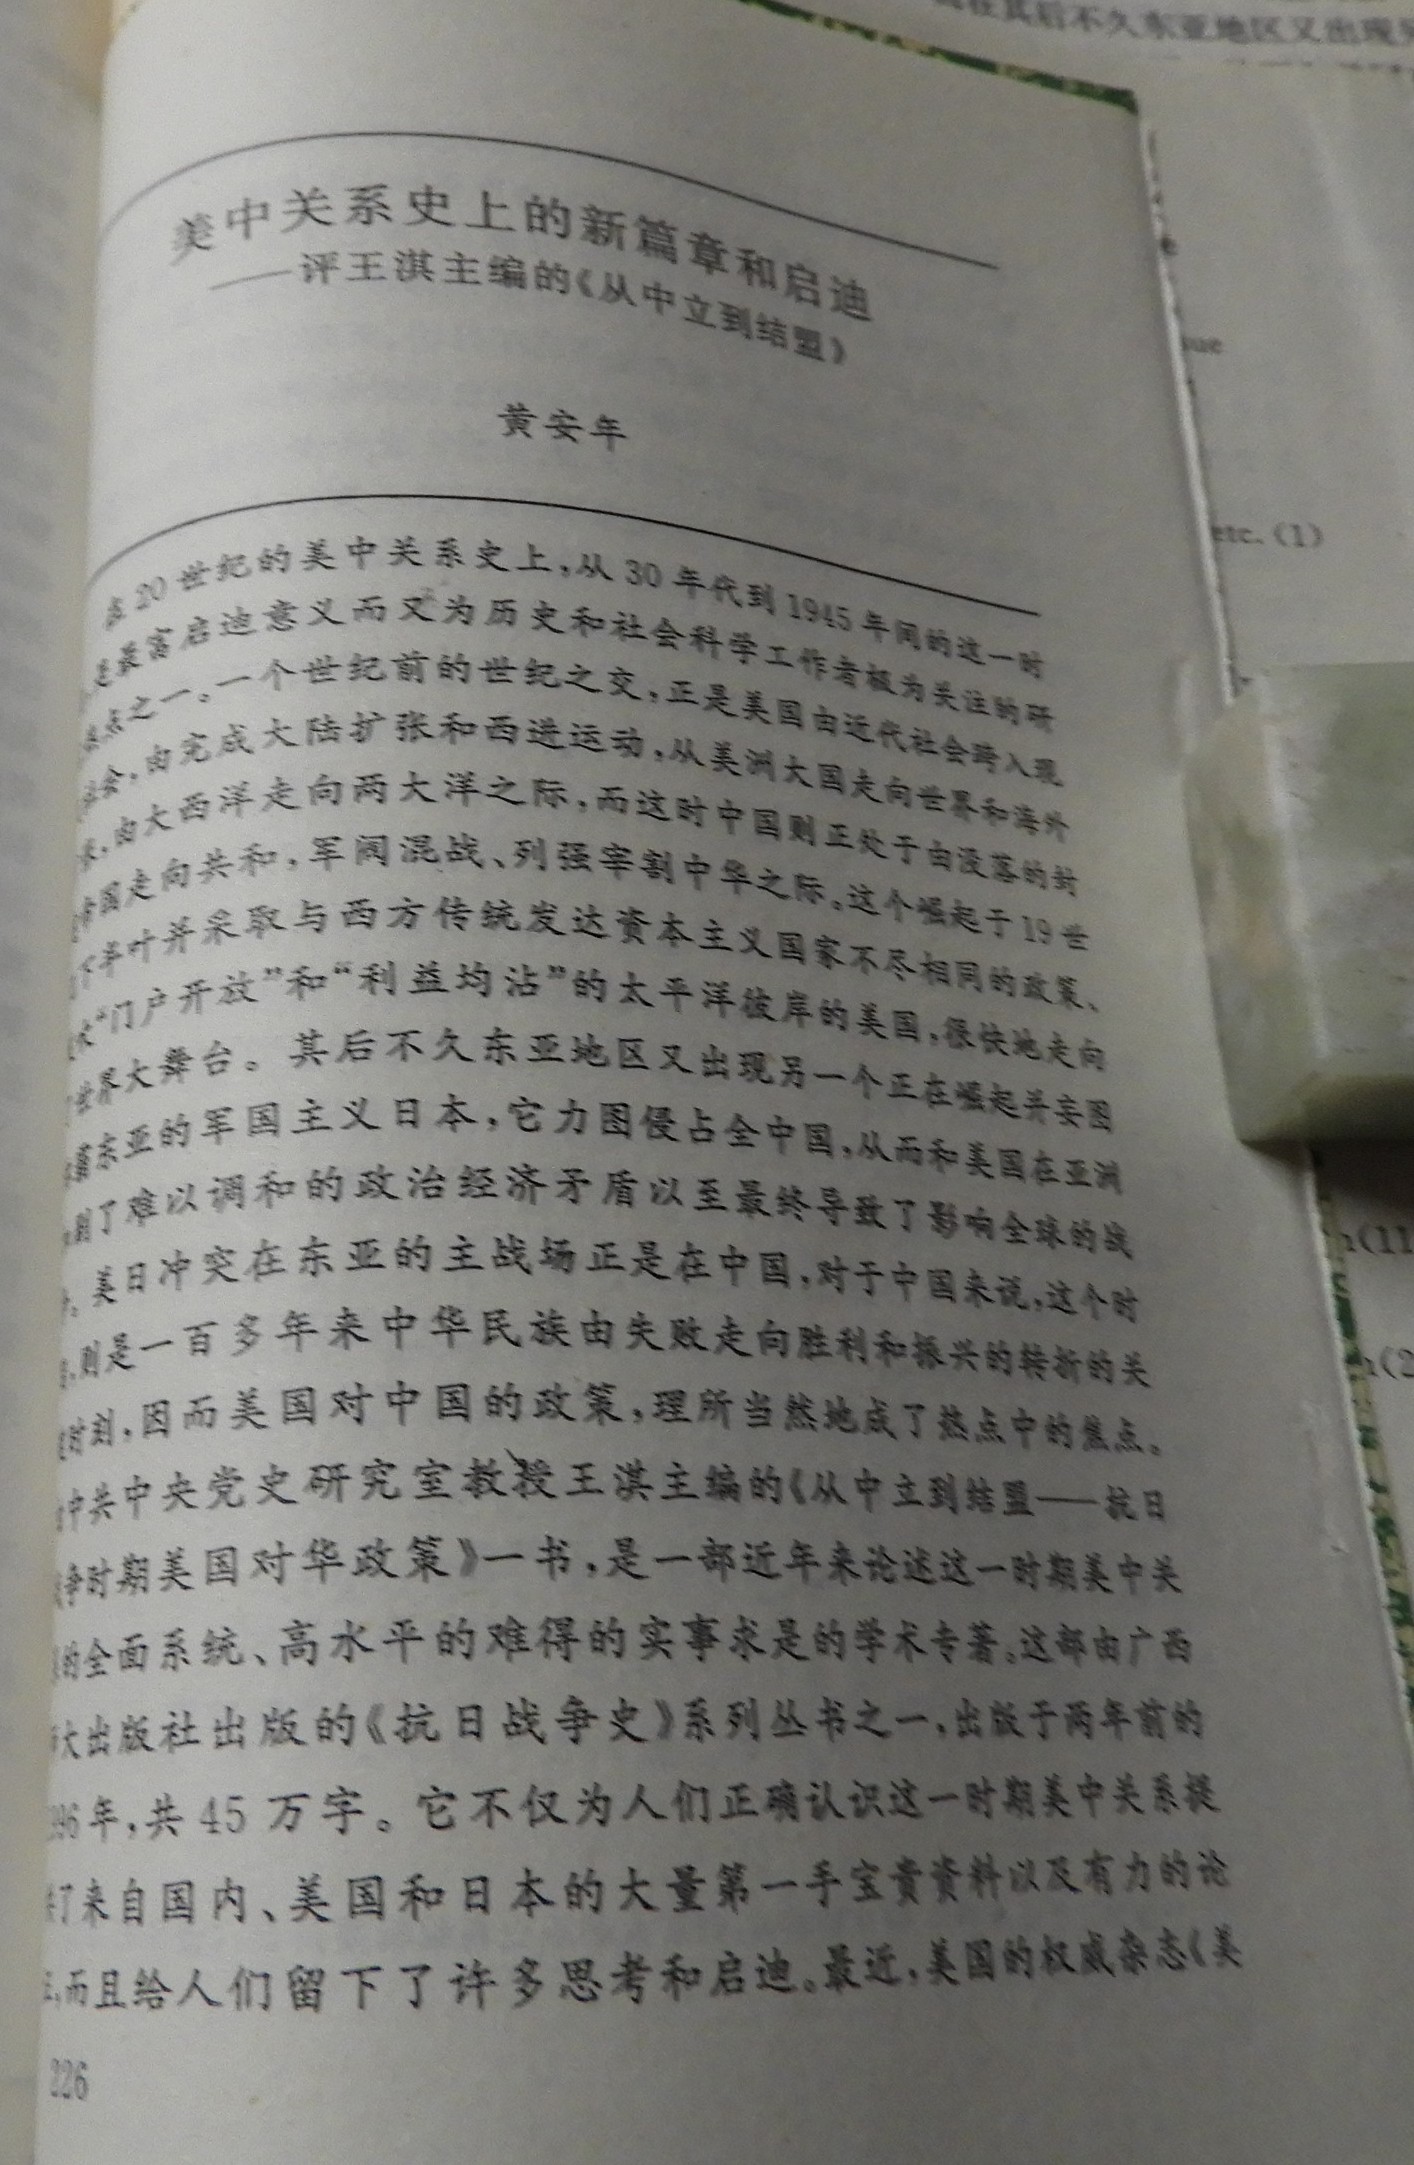 在其后不久东亚地区又出现
美中关系史上的新篇章和启迪
——评王淇主编的《从中立到结盟》
黄安年
在20世纪的美中关系史上，从30年代到1945年间的这一时
是最富启迪意义而又为历史和社会科学工作者极为关注的研
点之一。一个世纪前的世纪之交，正是美国由近代社会跨入现
会，由完成大陆扩张和西进运动，从美洲大国走向世界和海外
张，由大西洋走向两大洋之际，而这时中国则正处于由没落的封
帝国走向共和，军阀混战、列强宰割中华之际。这个崛起于19世
下半叶并采取与西方传统发达资本主义国家不尽相同的政策、
“门户开放”和“利益均沾”的太平洋彼岸的美国，很快地走向
世界大舞台。其后不久东亚地区又出现另一个正在崛起并妄图
东亚的军国主义日本，它力图侵占全中国，从而和美国在亚洲
了难以调和的政治经济矛盾以至最终导致了影响全球的战
美日冲突在东亚的主战场正是在中国，对于中国来说，这个时
，则是一百多年来中华民族由失败走向胜利和振兴的转折的关
时刻，因而美国对中国的政策，理所当然地成了热点中的焦点。
中共中央党史研究室教授王淇主编的《从中立到结盟——抗日
争时期美国对华政策》一书，是一部近年来论述这一时期美中关
的全面系统、高水平的难得的实事求是的学术专著。这部由广西
大出版社出版的《抗日战争史》系列丛书之一，出版于两年前的
96年，共45万字。它不仅为人们正确认识这一时期美中关系提
了来自国内、美国和日本的大量第一手宝贵资料以及有力的论
，而且给人们留下了许多思考和启迪。最近，美国的权威杂志《美
226
etc. (1)
(11
(2